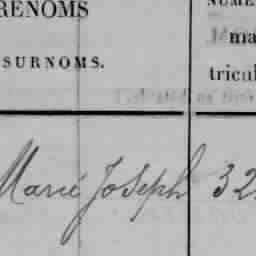 RENOMS
SURNOMS.
NUMÉ
ma
tricul
Marie Joseph 32